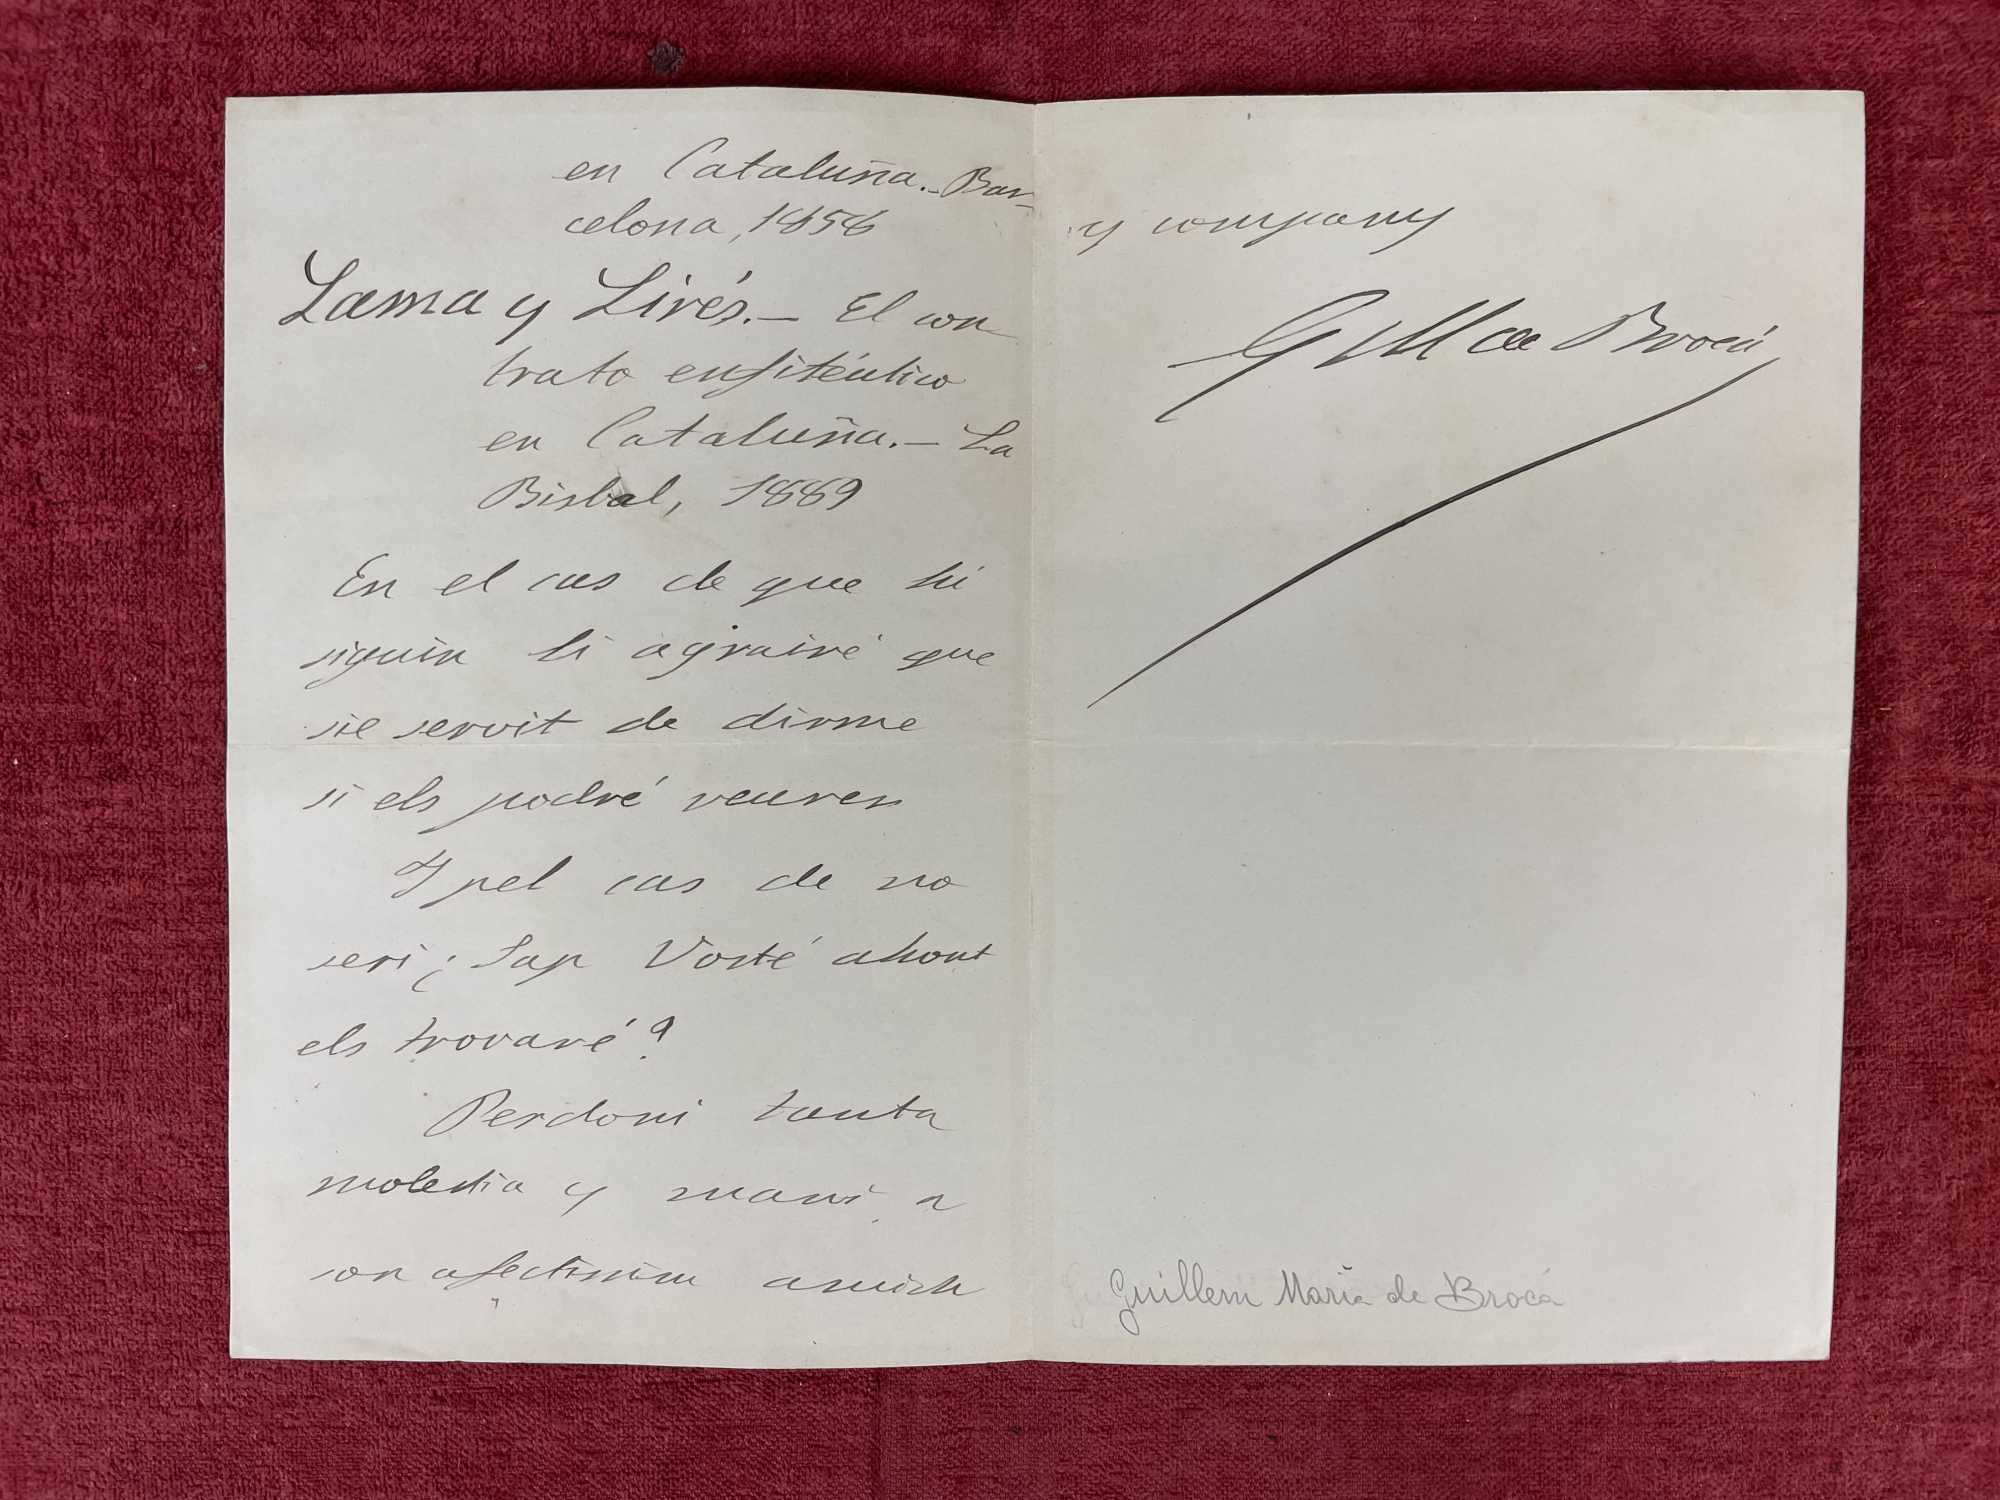 en Cataluña.- Bar-
celona, 1858
Lama y Livés.- El con
trato enfitéutico
en Cataluña.- La
Bisbal, 1889
En el cas de que hi
siguin li agrairé que
sie servit de dirme
si els podré veurer
Y pel cas de no
serì ¿Sap Vosté ahont
els trovaré?
Perdoni tanta
molestia y mani a
son afectissim amich
y company
Guill de Brocá
Guillem Maria de Brocá